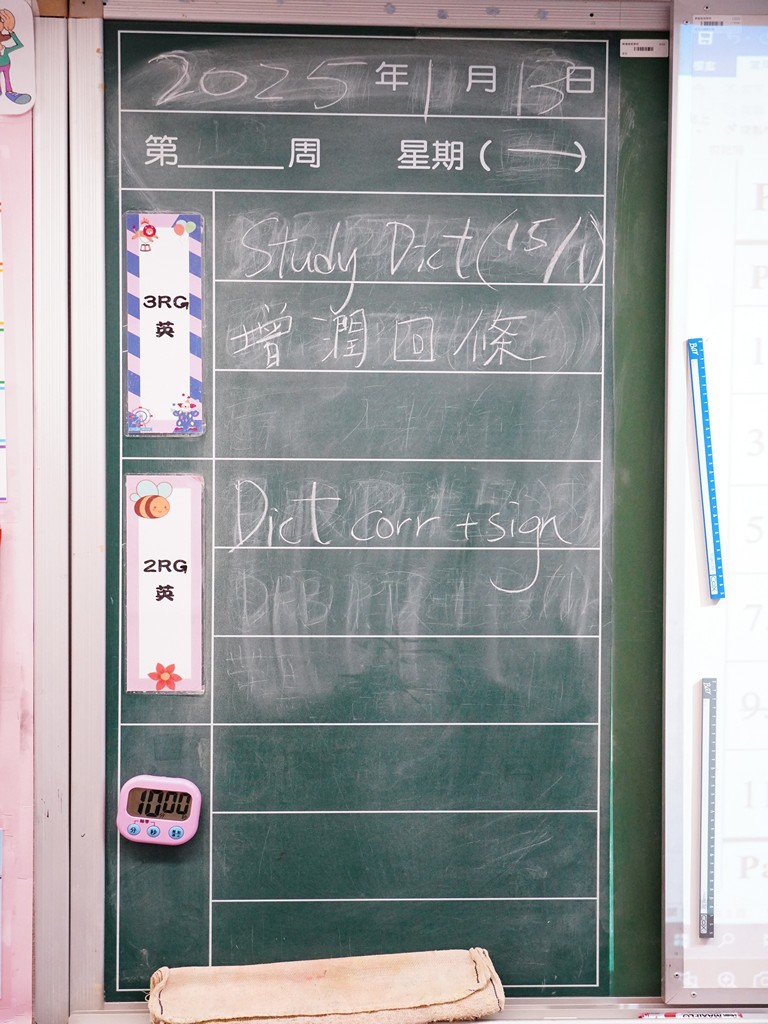 2025年1月13日
第______周 星期(一)
3RG
英
Study Dict (15/1)
增潤回條
2RG
英
Dict corr + sign
10 00
分 秒